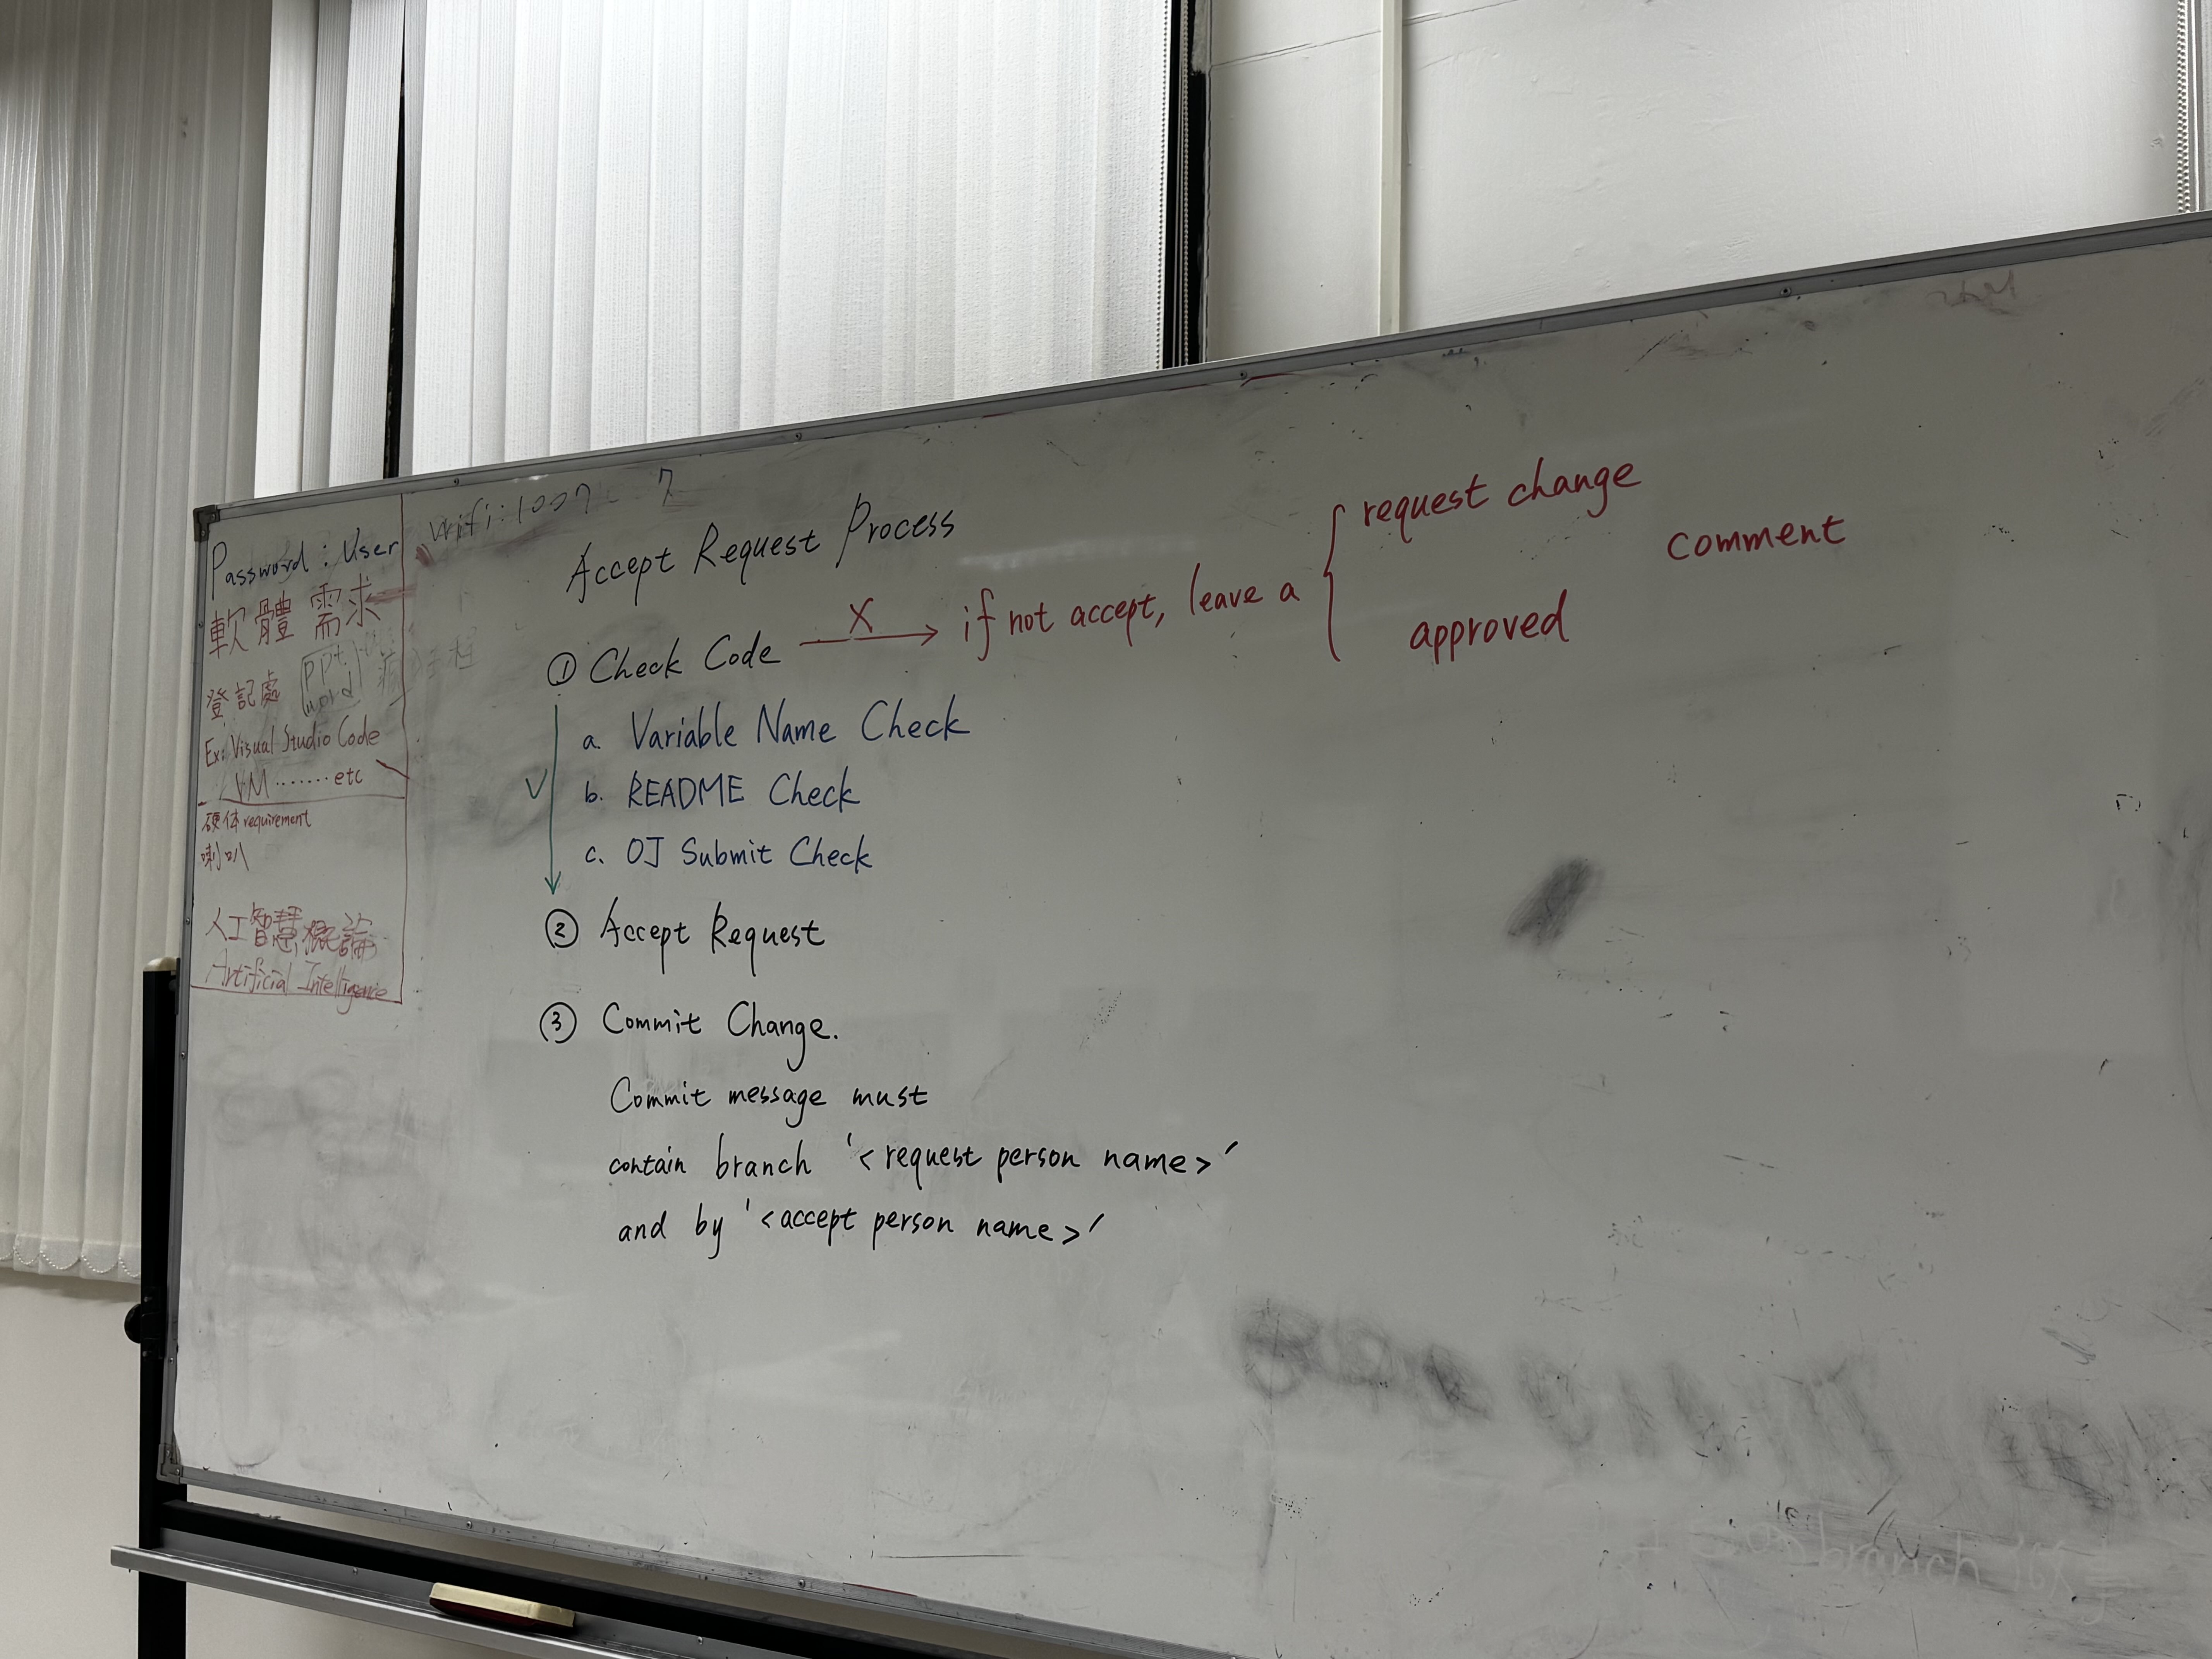 Password : User
wifi:
軟體需求
登記處
ppt
word
Ex: Visual Studio Code
VM ....... etc
硬体 requirement
喇叭
人工智慧概論
Artificial Intelligence
Accept Request Process
① Check Code X if not accept, leave a
request change
comment
approved
V
a. Variable Name Check
b. README Check
c. OJ Submit Check
② Accept Request
③ Commit Change.
Commit message must
contain branch '<request person name>'
and by '<accept person name>'
branch